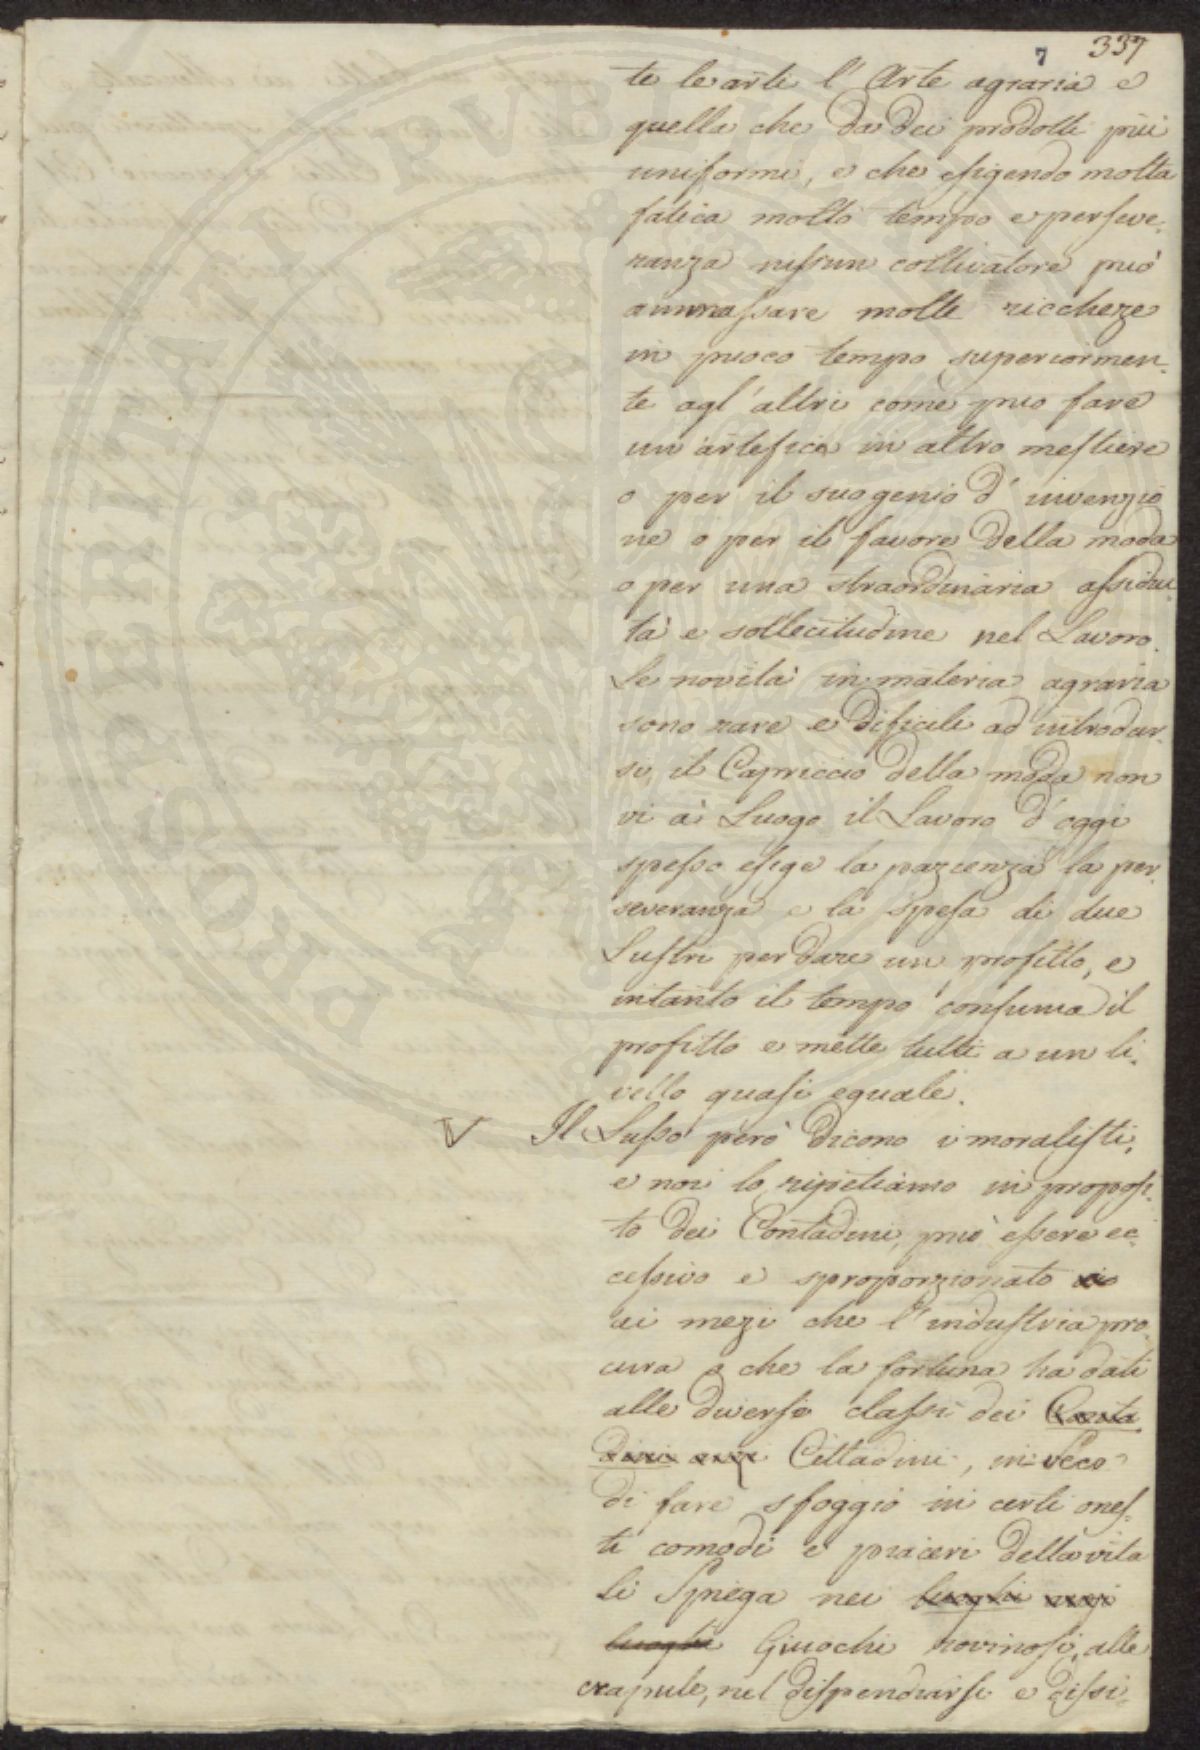 7 337
te le arti l'Arte agraria e
quella che dà dei prodotti più
uniformi, e che esigendo molta
fatica molto tempo e perseve-
ranza nissun coltivatore può
ammassare molte riccheze
in puoco tempo superiormen-
te agl'altri come può fare
un artefice in altro mestiere
o per il suo genio d'invenzio
ne o per il favore della moda
o per una straordinaria assidui-
tà e sollecitudine nel Lavoro.
Le novità in materia agraria
sono rare e dificili ad introdur-
si, il Capriccio della moda non
vi à Luogo il Lavoro d'oggi
spesso esige la pazienza la per-
severanza e la spesa di due
Lustri per dare un profitto, e
intanto il tempo consuma il
profitto e mette tutti a un li-
vello quasi eguale.
V Il Lusso però dicono i moralisti,
e noi lo ripetiamo in proposi-
to dei Contadini, può essere ec-
cessivo e sproporzionato
ai mezi che l'industria pro-
cura o che la fortuna ha dati
alle diverse classi dei Conta
dini Cittadini, in Veco
di fare sfoggio in certi ones-
ti comodi e piaceri della vita
si Spiega nei luoghi
luoghi Giuochi rovinosi, alle
crapule, nel dispendiarsi e dissi-